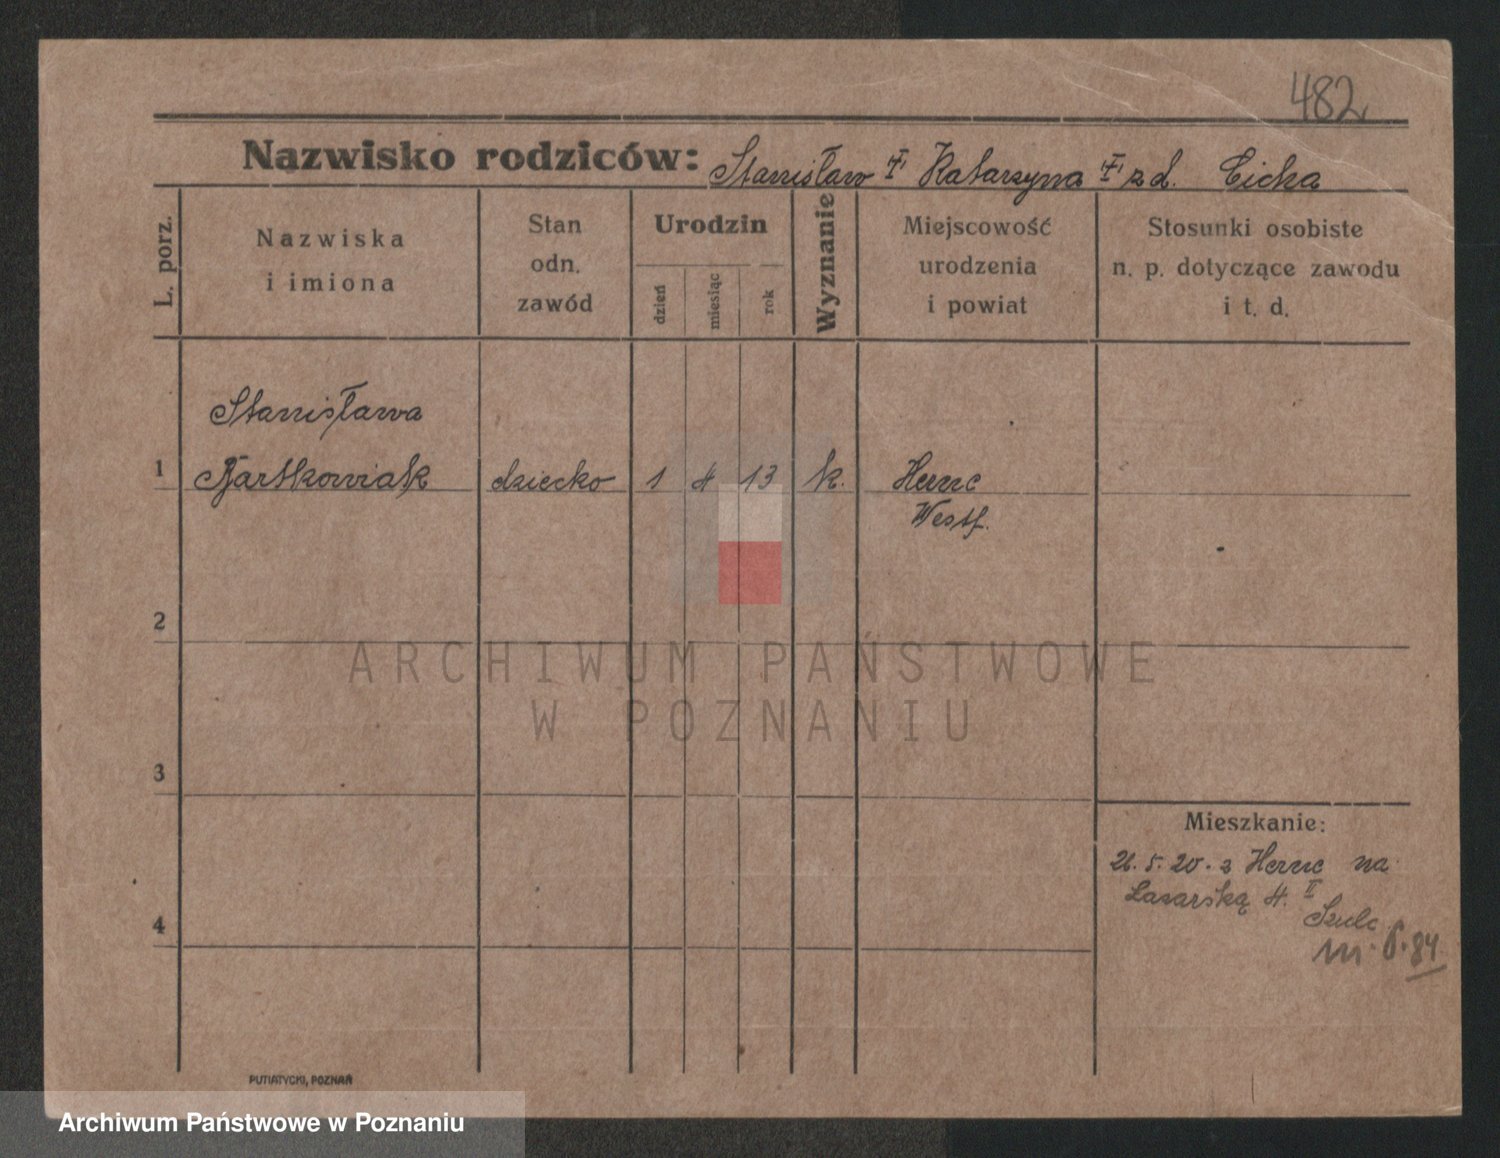 482
Nazwisko rodziców: Stanisław † Katarzyna † z d. Cicha
L. porz.
Nazwiska
i imiona
Stan
odn.
zawód
Urodzin
dzień
miesiąc
rok
Wyznanie
Miejscowość
urodzenia
i powiat
Stosunki osobiste
n. p. dotyczące zawodu
i t. d.
Stanisława
1 Bartkowiak dziecko 1 4 13 k. Herne
Westf.
2
3
4
ARCHIWUM PAŃSTWOWE
W POZNANIU
Mieszkanie:
21. 5. 20. z Herne na
Łazarską 4. II
Szulc
m. 6. 84.
PUTIATYCKI, POZNAŃ
Archiwum Państwowe w Poznaniu